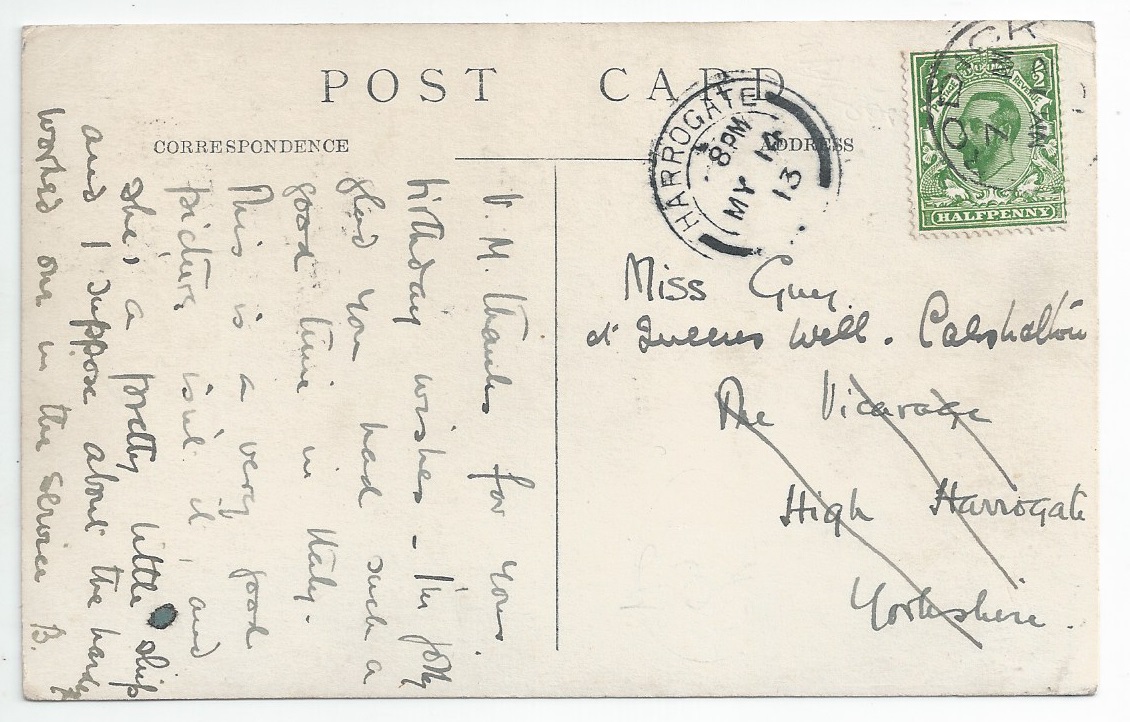 POST CARD
CORRESPONDENCE
ADDRESS
HARROGATE
8 PM
MY 14
13
HALFPENNY
Miss Guy
at Queens Well. Carshalton
The Vicarage
High Harrogate
Yorkshire.
V. M. thanks for your
birthday wishes – I'm jolly
glad you had such a
good time in Italy.
This is a very good
picture isn't it, and
she's a pretty little ship
and I suppose about the hardest
worked one in the service B.